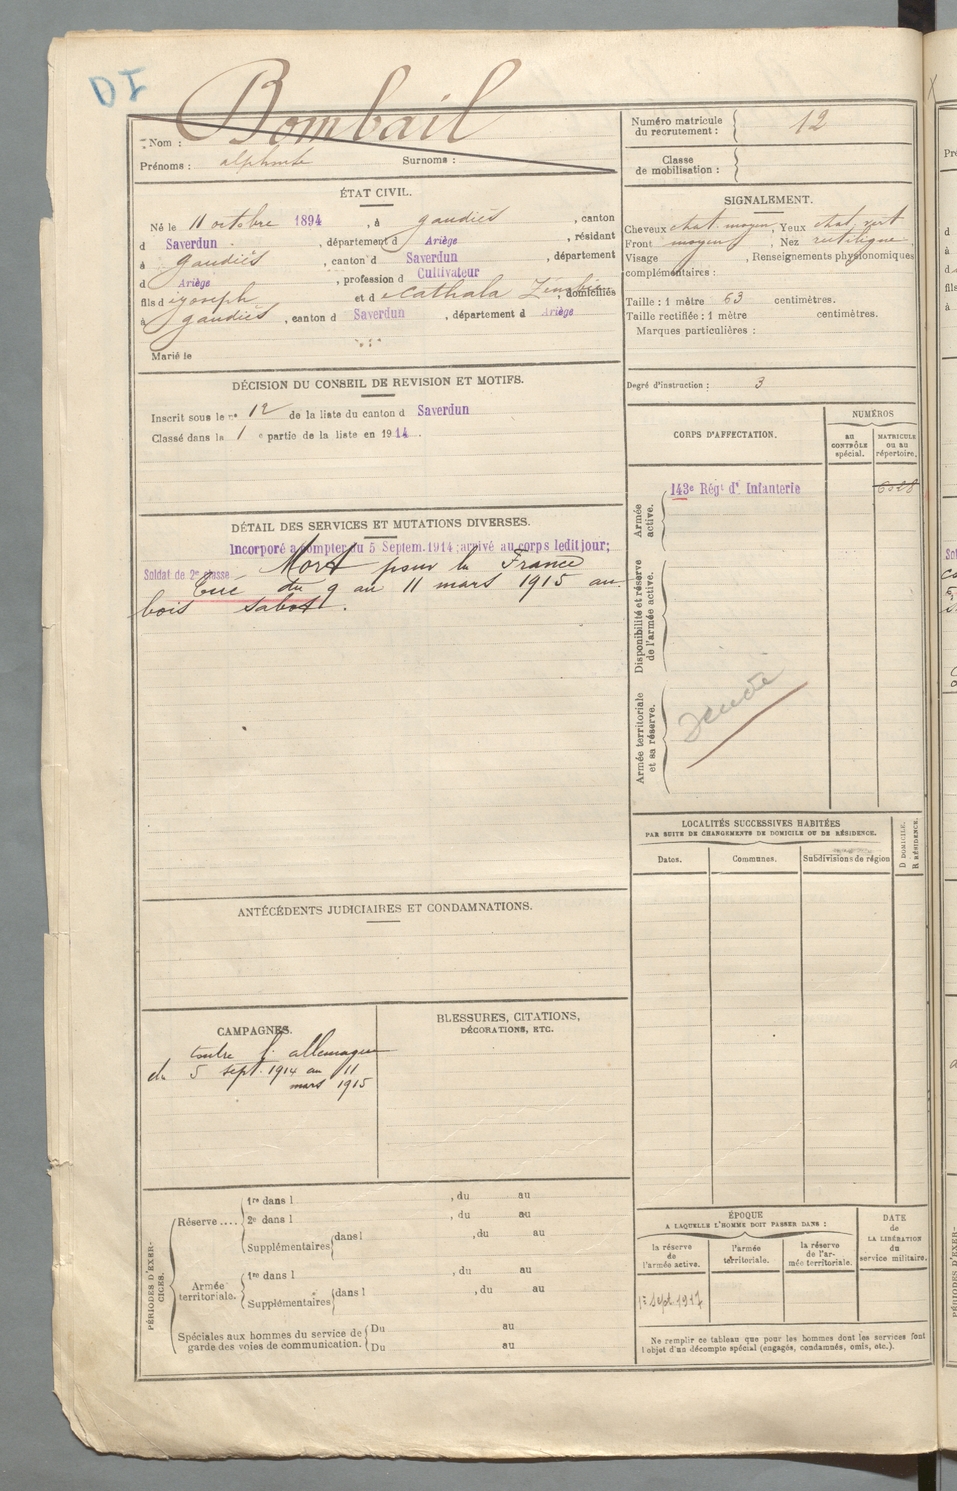 DI
Nom : Bombail
Prénoms : alphonse Surnoms :
Numéro matricule du recrutement : 12
Classe de mobilisation :
ÉTAT CIVIL.
Né le 11 octobre 1894, à gaudiès, canton
d Saverdun, département d Ariège, résidant
à gaudiès, canton d Saverdun, département
d Ariège, profession d Cultivateur
fils d joseph et d Cathala, domiciliés
à gaudiès, canton d Saverdun, département d Ariège
Marié le
SIGNALEMENT.
Cheveux chat. moyen, Yeux chat. vert
Front moyen, Nez rectiligne.
Visage, Renseignements physionomiques
complémentaires :
Taille : 1 mètre 63 centimètres.
Taille rectifiée : 1 mètre centimètres.
Marques particulières :
Degré d'instruction : 3
DÉCISION DU CONSEIL DE REVISION ET MOTIFS.
Inscrit sous le n° 12 de la liste du canton d Saverdun
Classé dans la 1 e partie de la liste en 1914.
CORPS D'AFFECTATION.
NUMÉROS
au CONTRÔLE spécial.
MATRICULE ou au répertoire.
Armée active.
143e Régt d' Infanterie
Disponibilité et réserve de l'armée active.
Armée territoriale et sa réserve.
DÉTAIL DES SERVICES ET MUTATIONS DIVERSES.
Incorporé à compter du 5 Septem. 1914 ; arrivé au corps ledit jour ;
Soldat de 2e classe Mort pour la France
Tué du 9 au 11 mars 1915 au
bois sabot.
LOCALITÉS SUCCESSIVES HABITÉES
PAR SUITE DE CHANGEMENTS DE DOMICILE OU DE RÉSIDENCE.
Dates.
Communes.
Subdivisions de région
D DOMICILE.
R RÉSIDENCE.
ANTÉCÉDENTS JUDICIAIRES ET CONDAMNATIONS.
CAMPAGNES.
contre l' allemagne
du 5 sept. 1914 au 11
mars 1915
BLESSURES, CITATIONS,
DÉCORATIONS, ETC.
PÉRIODES D'EXERCICES.
Réserve....
1re dans l , du au
2e dans l , du au
Supplémentaires dans l , du au
Armée territoriale.
1re dans l , du au
Supplémentaires dans l , du au
Spéciales aux hommes du service de garde des voies de communication.
Du au
Du au
ÉPOQUE
A LAQUELLE L'HOMME DOIT PASSER DANS :
la réserve de l'armée active.
l'armée territoriale.
la réserve de l'armée territoriale.
DATE de LA LIBÉRATION du service militaire.
1er Sept. 1917
Ne remplir ce tableau que pour les hommes dont les services font
l'objet d'un décompte spécial (engagés, condamnés, omis, etc.).